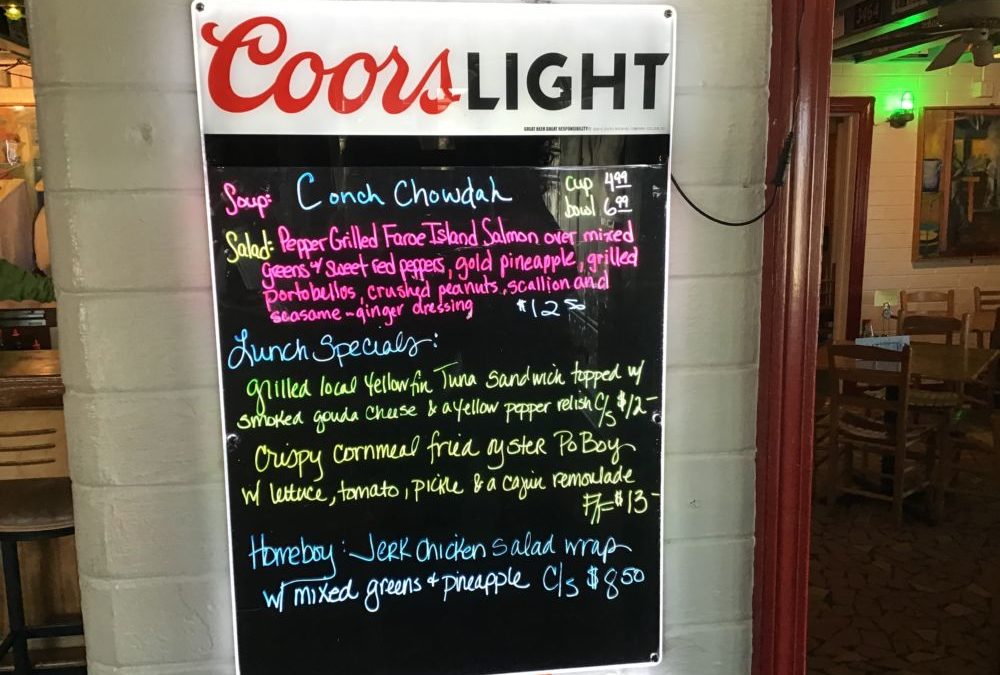 Coors LIGHT
GREAT BEER GREAT RESPONSIBILITY
Soup: Conch Chowdah cup 4.99
bowl 6.99
Salad: Pepper Grilled Faroe Island Salmon over mixed
greens w/ sweet red peppers, gold pineapple, grilled
portobellos, crushed peanuts, scallion and
seasame-ginger dressing $12 50
Lunch Specials:
grilled local Yellowfin Tuna Sandwich topped w/
smoked gouda cheese & a yellow pepper relish C/S $12-
Crispy cornmeal fried oyster Po Boy
w/ lettuce, tomato, pickle & a cajun remoulade
F/F $13-
Homeboy: Jerk chicken salad wrap
w/ mixed greens & pineapple C/S $8 50